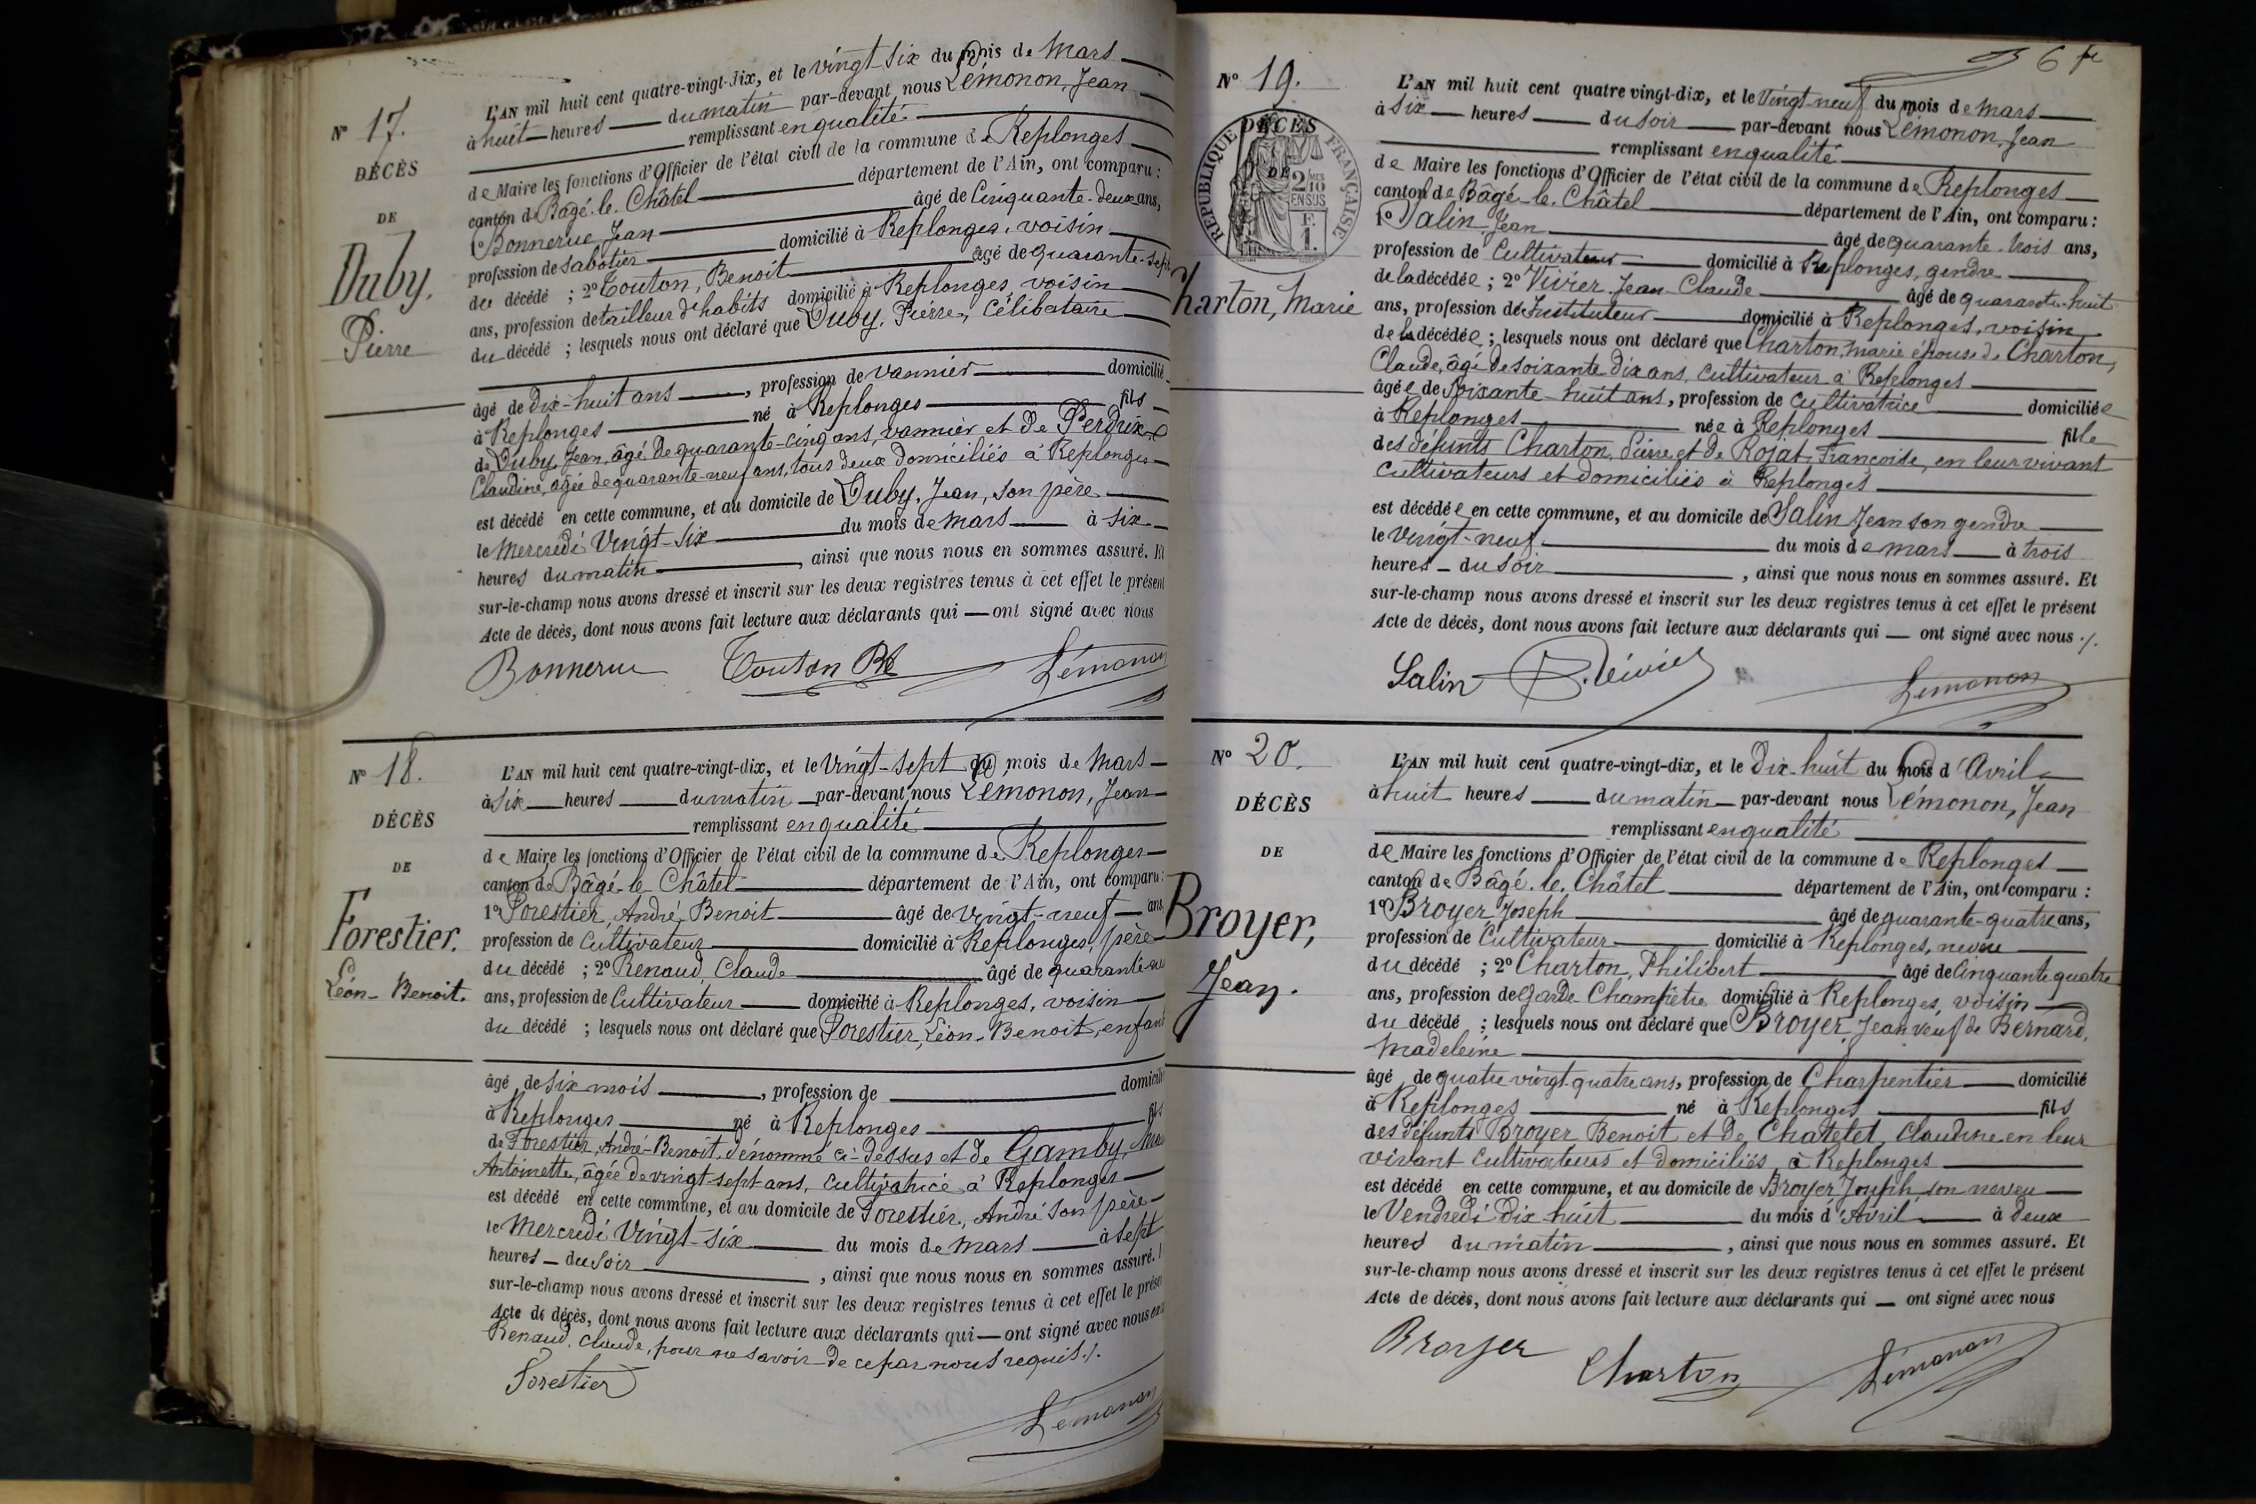 N° 17.
DÉCÈS
DE
Duby,
Pierre
L'AN mil huit cent quatre-vingt-dix, et le vingt-six du mois de Mars
à huit heures du matin par-devant nous Lémonon, Jean
remplissant en qualité
de Maire les fonctions d'Officier de l'état civil de la commune de Replonges
canton de Bâgé-le-Châtel département de l'Ain, ont comparu :
Bonnerue Jean âgé de Cinquante-deux ans,
profession de Sabotier domicilié à Replonges, voisin
du décédé ; 2° Touton, Benoit âgé de quarante-sept
ans, profession de tailleur d'habits domicilié à Replonges, voisin
du décédé ; lesquels nous ont déclaré que Duby, Pierre, Célibataire
âgé de dix-huit ans, profession de vannier domicilié
à Replonges né à Replonges fils
de Duby, Jean, âgé de quarante-cinq ans, vannier et de Perdrix
Claudine, âgée de quarante-neuf ans, tous deux domiciliés à Replonges
est décédé en cette commune, et au domicile de Duby, Jean, son père
le Mercredi Vingt-six du mois de mars à six
heures du matin, ainsi que nous nous en sommes assuré. Et
sur-le-champ nous avons dressé et inscrit sur les deux registres tenus à cet effet le présent
Acte de décès, dont nous avons fait lecture aux déclarants qui — ont signé avec nous
Bonnerue Touton Bt Lémonon
N° 18.
DÉCÈS
DE
Forestier,
Léon-Benoit.
L'AN mil huit cent quatre-vingt-dix, et le Vingt-sept du mois de Mars
à six heures du matin par-devant nous Lémonon, Jean
remplissant en qualité
de Maire les fonctions d'Officier de l'état civil de la commune de Replonges
canton de Bâgé-le-Châtel département de l'Ain, ont comparu :
1° Forestier, André-Benoit âgé de vingt-neuf ans,
profession de Cultivateur domicilié à Replonges, père
du décédé ; 2° Renaud, Claude âgé de quarante
ans, profession de Cultivateur domicilié à Replonges, voisin
du décédé ; lesquels nous ont déclaré que Forestier, Léon-Benoit, enfant
âgé de six mois, profession de domicilié
à Replonges né à Replonges fils
de Forestier, André-Benoit, dénommé ci-dessus et de Gamby,
Antoinette, âgée de vingt-sept ans, cultivatrice à Replonges
est décédé en cette commune, et au domicile de Forestier, André son père
le Mercredi Vingt-six du mois de mars à sept
heures du soir, ainsi que nous nous en sommes assuré.
sur-le-champ nous avons dressé et inscrit sur les deux registres tenus à cet effet le présent
Acte de décès, dont nous avons fait lecture aux déclarants qui — ont signé avec nous
Renaud, Claude, pour ne savoir de ce par nous requis ./.
Forestier
Lémonon
6
N° 19.
DÉCÈS
DE
RÉPUBLIQUE FRANÇAISE
2/10 EN SUS
F. 1.
Charton, Marie
L'AN mil huit cent quatre vingt-dix, et le Vingt-neuf du mois de mars
à six heures du soir par-devant nous Lémonon, Jean
remplissant en qualité
de Maire les fonctions d'Officier de l'état civil de la commune de Replonges
canton de Bâgé-le-Châtel département de l'Ain, ont comparu :
1° Salin, Jean âgé de quarante-trois ans,
profession de Cultivateur domicilié à Replonges, gendre
de la décédée ; 2° Vivier, Jean-Claude âgé de quarante-huit
ans, profession de Instituteur domicilié à Replonges, voisin
de la décédée ; lesquels nous ont déclaré que Charton, Marie épouse de Charton,
Claude, âgé de soixante-dix ans, cultivateur à Replonges
âgée de soixante-huit ans, profession de cultivatrice domiciliée
à Replonges née à Replonges fille
des défunts Charton, Pierre et de Rojat, Françoise, en leur vivant
cultivateurs et domiciliés à Replonges
est décédée en cette commune, et au domicile de Salin Jean son gendre
le Vingt-neuf du mois de mars à trois
heures du soir, ainsi que nous nous en sommes assuré. Et
sur-le-champ nous avons dressé et inscrit sur les deux registres tenus à cet effet le présent
Acte de décès, dont nous avons fait lecture aux déclarants qui — ont signé avec nous ./.
Salin Vivier Lémonon
N° 20.
DÉCÈS
DE
Broyer,
Jean.
L'AN mil huit cent quatre-vingt-dix, et le Dix-huit du mois d'Avril
à huit heures du matin par-devant nous Lémonon, Jean
remplissant en qualité
de Maire les fonctions d'Officier de l'état civil de la commune de Replonges
canton de Bâgé-le-Châtel département de l'Ain, ont comparu :
1° Broyer, Joseph âgé de quarante-quatre ans,
profession de Cultivateur domicilié à Replonges, neveu
du décédé ; 2° Charton, Philibert âgé de Cinquante quatre
ans, profession de Garde Champêtre domicilié à Replonges, voisin
du décédé ; lesquels nous ont déclaré que Broyer, Jean veuf de Bernard,
Madeleine
âgé de quatre vingt-quatre ans, profession de Charpentier domicilié
à Replonges né à Replonges fils
des défunts Broyer, Benoit et de Chatelet, Claudine en leur
vivant Cultivateurs et domiciliés à Replonges
est décédé en cette commune, et au domicile de Broyer Joseph, son neveu
le Vendredi Dix-huit du mois d'Avril à deux
heures du matin, ainsi que nous nous en sommes assuré. Et
sur-le-champ nous avons dressé et inscrit sur les deux registres tenus à cet effet le présent
Acte de décès, dont nous avons fait lecture aux déclarants qui — ont signé avec nous
Broyer Charton Lémonon